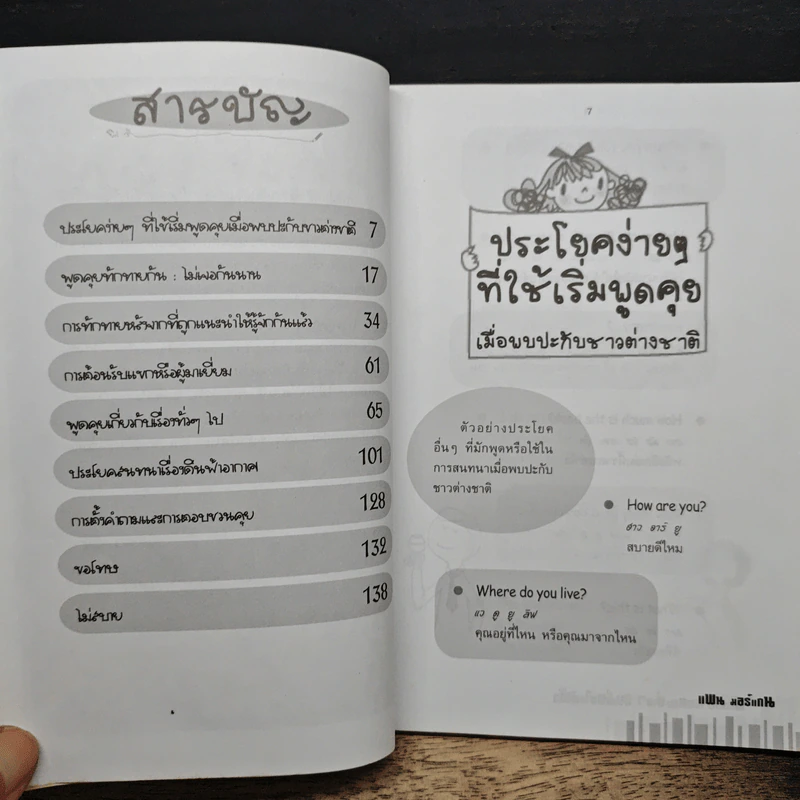 สารบัญ
ประโยคง่ายๆ ที่ใช้เริ่มพูดคุยเมื่อพบปะกับชาวต่างชาติ 7
พูดคุยทักทายกัน : ไม่เจอกันนาน 17
การทักทายหลังจากที่ถูกแนะนำให้รู้จักกันแล้ว 34
การต้อนรับแขกหรือผู้มาเยี่ยม 61
พูดคุยเกี่ยวกับเรื่องทั่วๆ ไป 65
ประโยคสนทนาเรื่องดินฟ้าอากาศ 101
การตั้งคำถามและการตอบชวนคุย 128
ขอโทษ 132
ไม่สบาย 138
7
ประโยคง่ายๆ
ที่ใช้เริ่มพูดคุย
เมื่อพบปะกับชาวต่างชาติ
ตัวอย่างประโยค
อื่นๆ ที่มักพูดหรือใช้ใน
การสนทนาเมื่อพบปะกับ
ชาวต่างชาติ
How are you?
ฮาว อาร์ ยู
สบายดีไหม
Where do you live?
แว ดู ยู ลิฟ
คุณอยู่ที่ไหน หรือคุณมาจากไหน
แฟน มอร์แกน